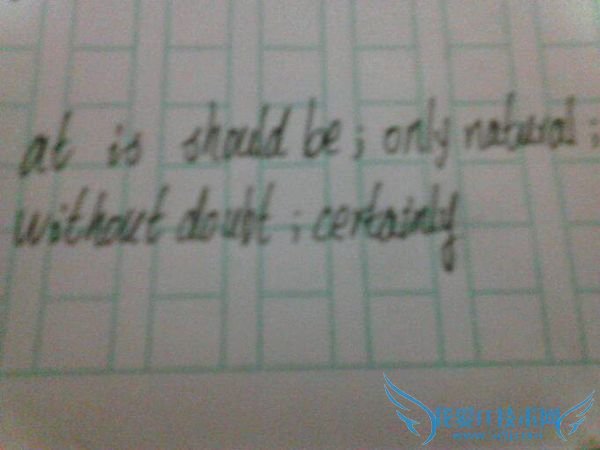 at is should be; only natural;
without doubt; certainly